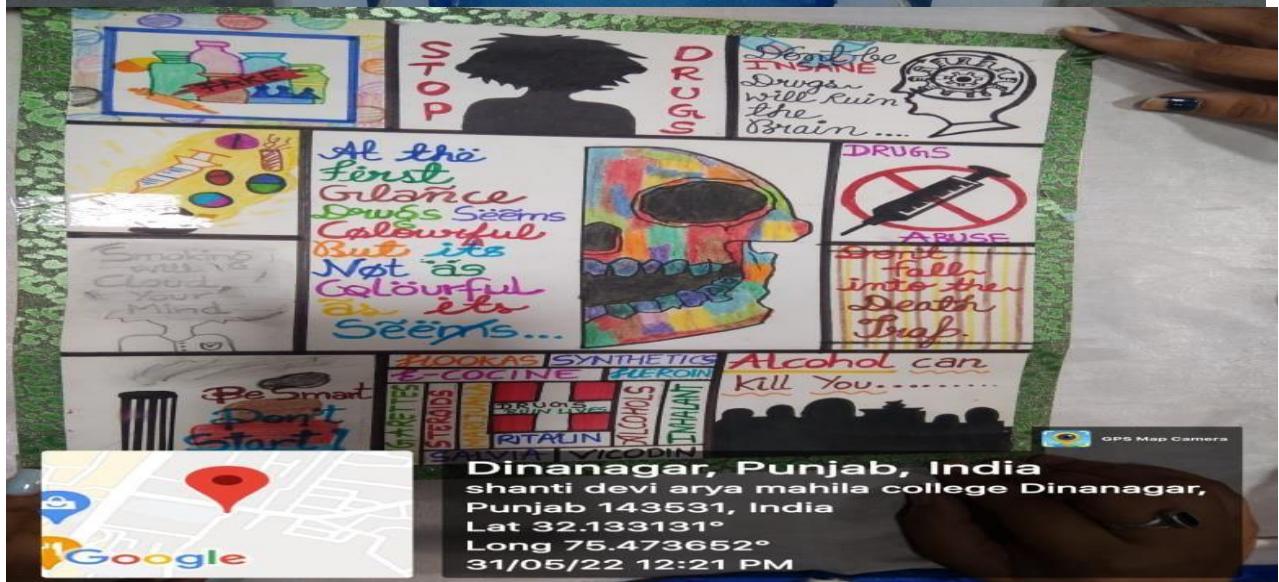 FAKE
STOP
DRUGS
Don't be
INSANE
Drugs
will Ruin
the
Brain ....
At the
first
Glance
Drugs Seems
Colourful
But its
Not as
Colourful
as its
Seems...
DRUGS
ABUSE
Smoking
will
Cloud
Your
Mind
Dont
fall
into the
Death
Trap
Be Smart
Don't
Start!
HOOKAS
SYNTHETICS
E-COCINE
HEROIN
STEROIDS
MARIJUANA
DRUGS
RUIN LIVES
RITALIN
ALCOHOLS
INHALANT
SALVIA
VICODIN
Alcohol can
Kill You.........
Google
GPS Map Camera
Dinanagar, Punjab, India
shanti devi arya mahila college Dinanagar,
Punjab 143531, India
Lat 32.133131°
Long 75.473652°
31/05/22 12:21 PM